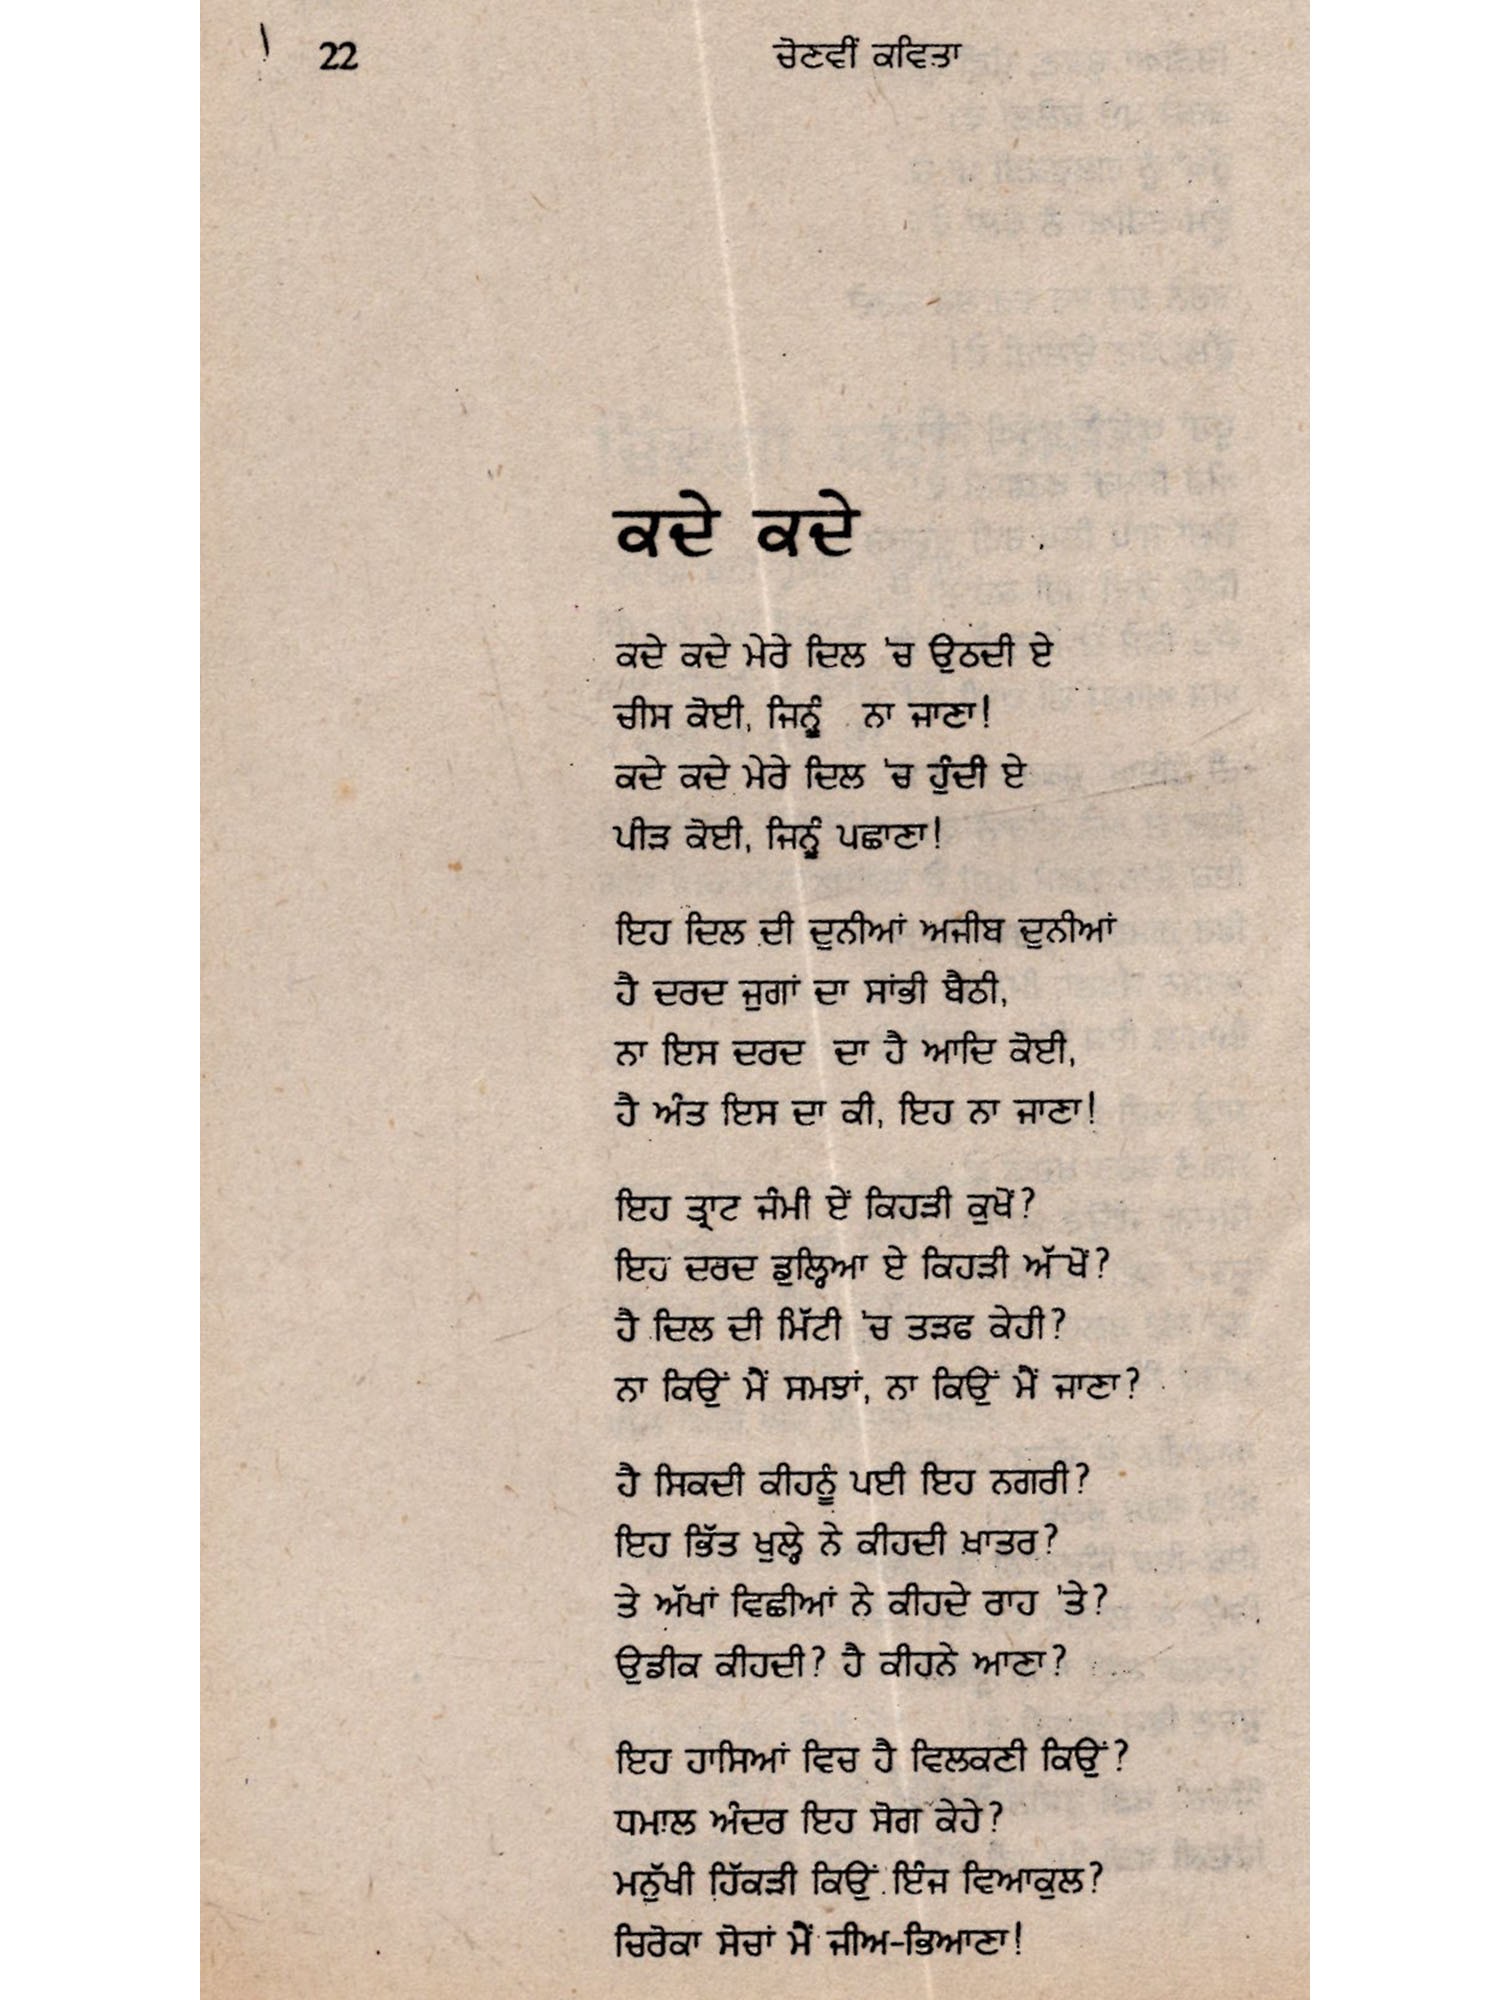 22 ਚੋਣਵੀਂ ਕਵਿਤਾ
ਕਦੇ ਕਦੇ
ਕਦੇ ਕਦੇ ਮੇਰੇ ਦਿਲ 'ਚ ਉਠਦੀ ਏ
ਚੀਸ ਕੋਈ, ਜਿਨੂੰ ਨਾ ਜਾਣਾ!
ਕਦੇ ਕਦੇ ਮੇਰੇ ਦਿਲ 'ਚ ਹੁੰਦੀ ਏ
ਪੀੜ ਕੋਈ, ਜਿਨੂੰ ਪਛਾਣਾ!
ਇਹ ਦਿਲ ਦੀ ਦੁਨੀਆਂ ਅਜੀਬ ਦੁਨੀਆਂ
ਹੈ ਦਰਦ ਜੁਗਾਂ ਦਾ ਸਾਂਭੀ ਬੈਠੀ,
ਨਾ ਇਸ ਦਰਦ ਦਾ ਹੈ ਆਦਿ ਕੋਈ,
ਹੈ ਅੰਤ ਇਸ ਦਾ ਕੀ, ਇਹ ਨਾ ਜਾਣਾ!
ਇਹ ਤ੍ਰਾਟ ਜੰਮੀ ਏਂ ਕਿਹੜੀ ਕੁਖੋਂ?
ਇਹ ਦਰਦ ਡੁਲ੍ਹਿਆ ਏ ਕਿਹੜੀ ਅੱਖੋਂ?
ਹੈ ਦਿਲ ਦੀ ਮਿੱਟੀ 'ਚ ਤੜਫ ਕੇਹੀ?
ਨਾ ਕਿਉਂ ਮੈਂ ਸਮਝਾਂ, ਨਾ ਕਿਉਂ ਮੈਂ ਜਾਣਾ?
ਹੈ ਸਿਕਦੀ ਕੀਹਨੂੰ ਪਈ ਇਹ ਨਗਰੀ?
ਇਹ ਭਿੱਤ ਖੁਲ੍ਹੇ ਨੇ ਕੀਹਦੀ ਖ਼ਾਤਰ?
ਤੇ ਅੱਖਾਂ ਵਿਛੀਆਂ ਨੇ ਕੀਹਦੇ ਰਾਹ 'ਤੇ?
ਉਡੀਕ ਕੀਹਦੀ? ਹੈ ਕੀਹਨੇ ਆਣਾ?
ਇਹ ਹਾਸਿਆਂ ਵਿਚ ਹੈ ਵਿਲਕਣੀ ਕਿਉਂ?
ਧਮਾਲ ਅੰਦਰ ਇਹ ਸੋਗ ਕੇਹੇ?
ਮਨੁੱਖੀ ਹਿੱਕੜੀ ਕਿਉਂ ਇੰਜ ਵਿਆਕੁਲ?
ਚਿਰੋਕਾ ਸੋਚਾਂ ਮੈਂ ਜੀਅ-ਭਿਆਣਾ!